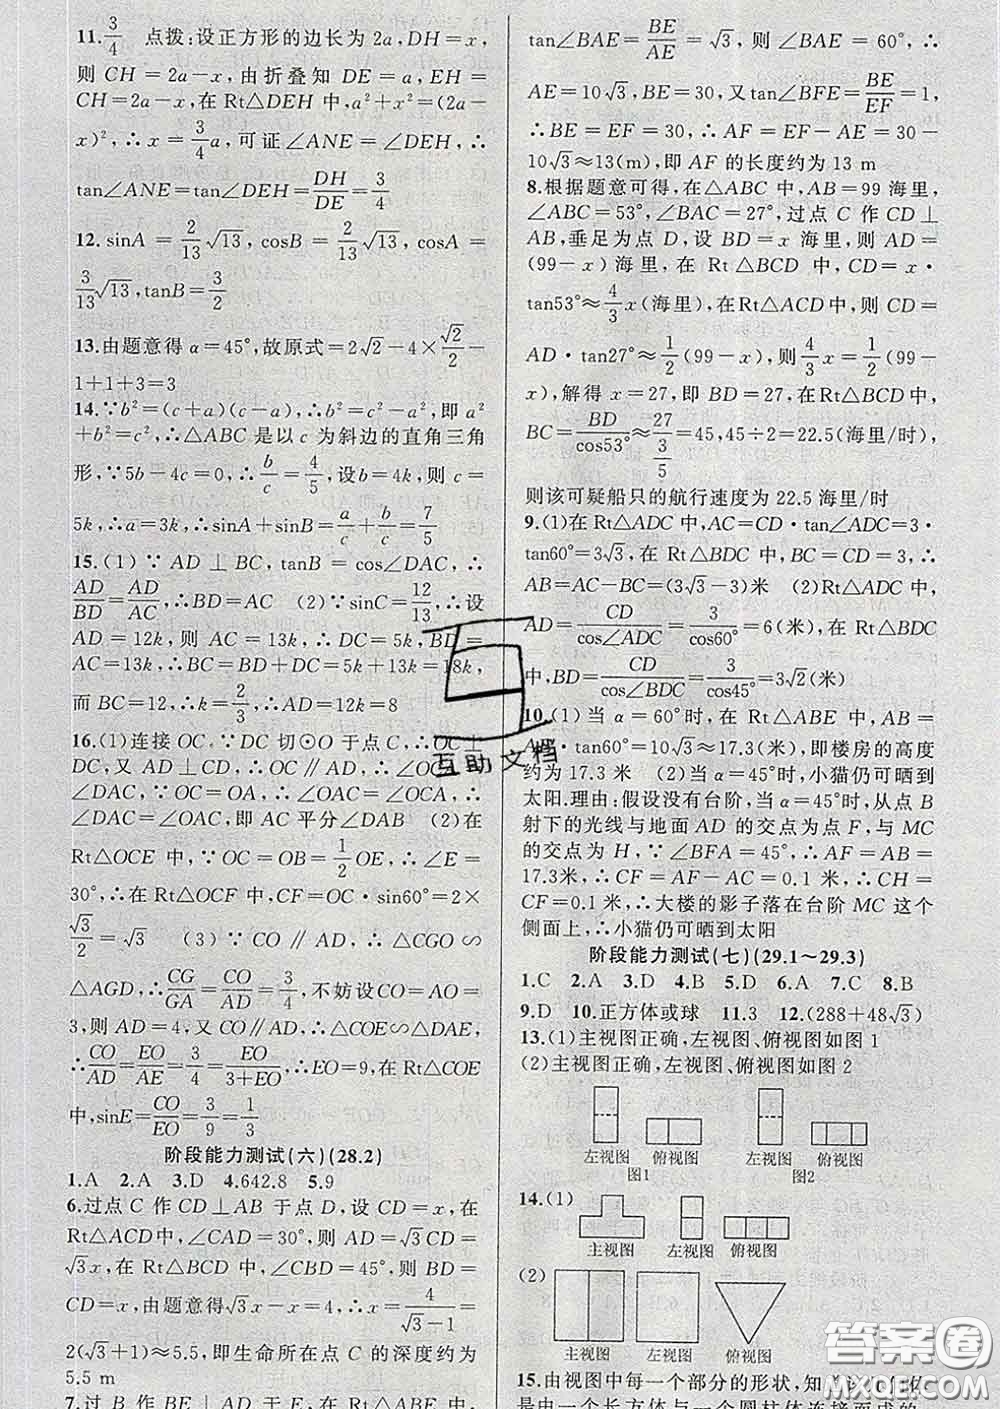 11.3/4　点拨:设正方形的边长为2a,DH=x,
则 CH=2a-x,由折叠知 DE=a,EH=
CH=2a-x,在Rt△DEH 中,a²+x²=(2a-
x)²,∴x=3/4a,可证∠ANE=∠DEH,∴
tan∠ANE=tan∠DEH=DH/DE=3/4
12. sinA=2/13√13,cosB=2/13√13,cosA=
3/13√13,tanB=3/2
13.由题意得 α=45°,故原式=2√2-4×√2/2-
1+1+3=3
14.∵b²=(c+a)(c-a),∴b²=c²-a²,即a²
+b²=c²,∴△ABC 是以c为斜边的直角三角
形,∵5b-4c=0,∴b/c=4/5,设b=4k,则 c=
5k,∴a=3k,∴sinA+sinB=a/c+b/c=7/5
15.(1)∵AD⊥BC,tanB=cos∠DAC,∴
AD/BD=AD/AC,∴BD=AC　(2)∵sinC=12/13,∴设
AD=12k,则 AC=13k,∴DC=5k,BD=
AC=13k,∴BC=BD+DC=5k+13k=18k,
而 BC=12,∴k=2/3,∴AD=12k=8
16.(1)连接OC,∵DC 切⊙O 于点C,∴OC⊥
∠DAC,∵OC=OA,∴∠OAC=∠OCA,∴
∠DAC=∠OAC,即 AC 平分∠DAB　(2)在
Rt△OCE 中,∵OC=OB=1/2OE,∴∠E=
30°,∴在 Rt△OCF 中,CF=OC·sin60°=2×
√3/2=√3　(3)∵CO∥AD,∴△CGO∽
△AGD,∴CG/GA=CO/AD=3/4,不妨设CO=AO=
3,则 AD=4,又 CO∥AD,∴△COE∽△DAE,
∴CO/AD=EO/AE=3/4=EO/(3+EO),∴EO=9,在Rt△COE
中,sinE=CO/EO=3/9=1/3
阶段能力测试(六)(28.2)
1.A 2.A 3.D 4.642.8 5.9
6.过点 C 作 CD⊥AB 于点 D,设 CD=x,在
Rt△ACD中,∠CAD=30°,则 AD=√3CD=
√3x,在Rt△BCD中,∠CBD=45°,则 BD=
CD=x,由题意得√3x-x=4,∴x=4/(√3-1)=
2(√3+1)≈5.5,即生命所在点 C 的深度约为
5.5 m
7.过 B 作 BE⊥AD 于 E,
tan∠BAE=BE/AE=√3,则∠BAE=60°,∴
AE=10√3,BE=30,又tan∠BFE=BE/EF=1,
∴BE=EF=30,∴AF=EF-AE=30-
10√3≈13(m),即 AF 的长度约为 13 m
8.根据题意可得,在△ABC 中,AB=99 海里,
∠ABC=53°,∠BAC=27°,过点 C 作 CD⊥
AB,垂足为点 D,设 BD=x 海里,则 AD=
(99-x)海里,在 Rt△BCD 中,CD=x·
tan53°≈4/3x(海里),在Rt△ACD中,则 CD=
AD·tan27°≈1/2(99-x),则4/3x=1/2(99-
x),解得 x=27,即 BD=27,在 Rt△BCD 中,
BC=BD/cos53°≈27/(3/5)=45,45÷2=22.5(海里/时),
则该可疑船只的航行速度为 22.5 海里/时
9.(1)在Rt△ADC中,AC=CD·tan∠ADC=3·
tan60°=3√3,在 Rt△BDC 中,BC=CD=3,∴
AB=AC-BC=(3√3-3)米　(2)Rt△ADC 中,
AD=CD/cos∠ADC=3/cos60°=6(米),在 Rt△BDC
中,BD=CD/cos∠BDC=3/cos45°=3√2(米)
10.(1)当 α=60°时,在 Rt△ABE 中,AB=
AE·tan60°=10√3≈17.3(米),即楼房的高度
约为 17.3 米　(2)当 α=45°时,小猫仍可晒到
太阳.理由:假设没有台阶,当 α=45°时,从点 B
射下的光线与地面 AD 的交点为点 F,与 MC
的交点为 H,∵∠BFA=45°,∴AF=AB=
17.3米,∴CF=AF-AC=0.1 米,∴CH=
CF=0.1 米,∴大楼的影子落在台阶 MC 这个
侧面上,∴小猫仍可晒到太阳
阶段能力测试(七)(29.1~29.3)
1.C 2.A 3.D 4.B 5.D 6.A 7.C 8.B
9.D 10.正方体或球 11.3 12.(288+48√3)
13.(1)主视图正确,左视图、俯视图如图 1
(2)主视图正确,左视图、俯视图如图 2
左视图 俯视图 左视图 俯视图
图1 图2
14.(1)
主视图 左视图 俯视图
(2)
主视图 左视图 俯视图
15.由视图中每一个部分的形状,知
是由一个长方体与一个圆柱体连接而成的
互助文档
答案圈
MXQE.COM